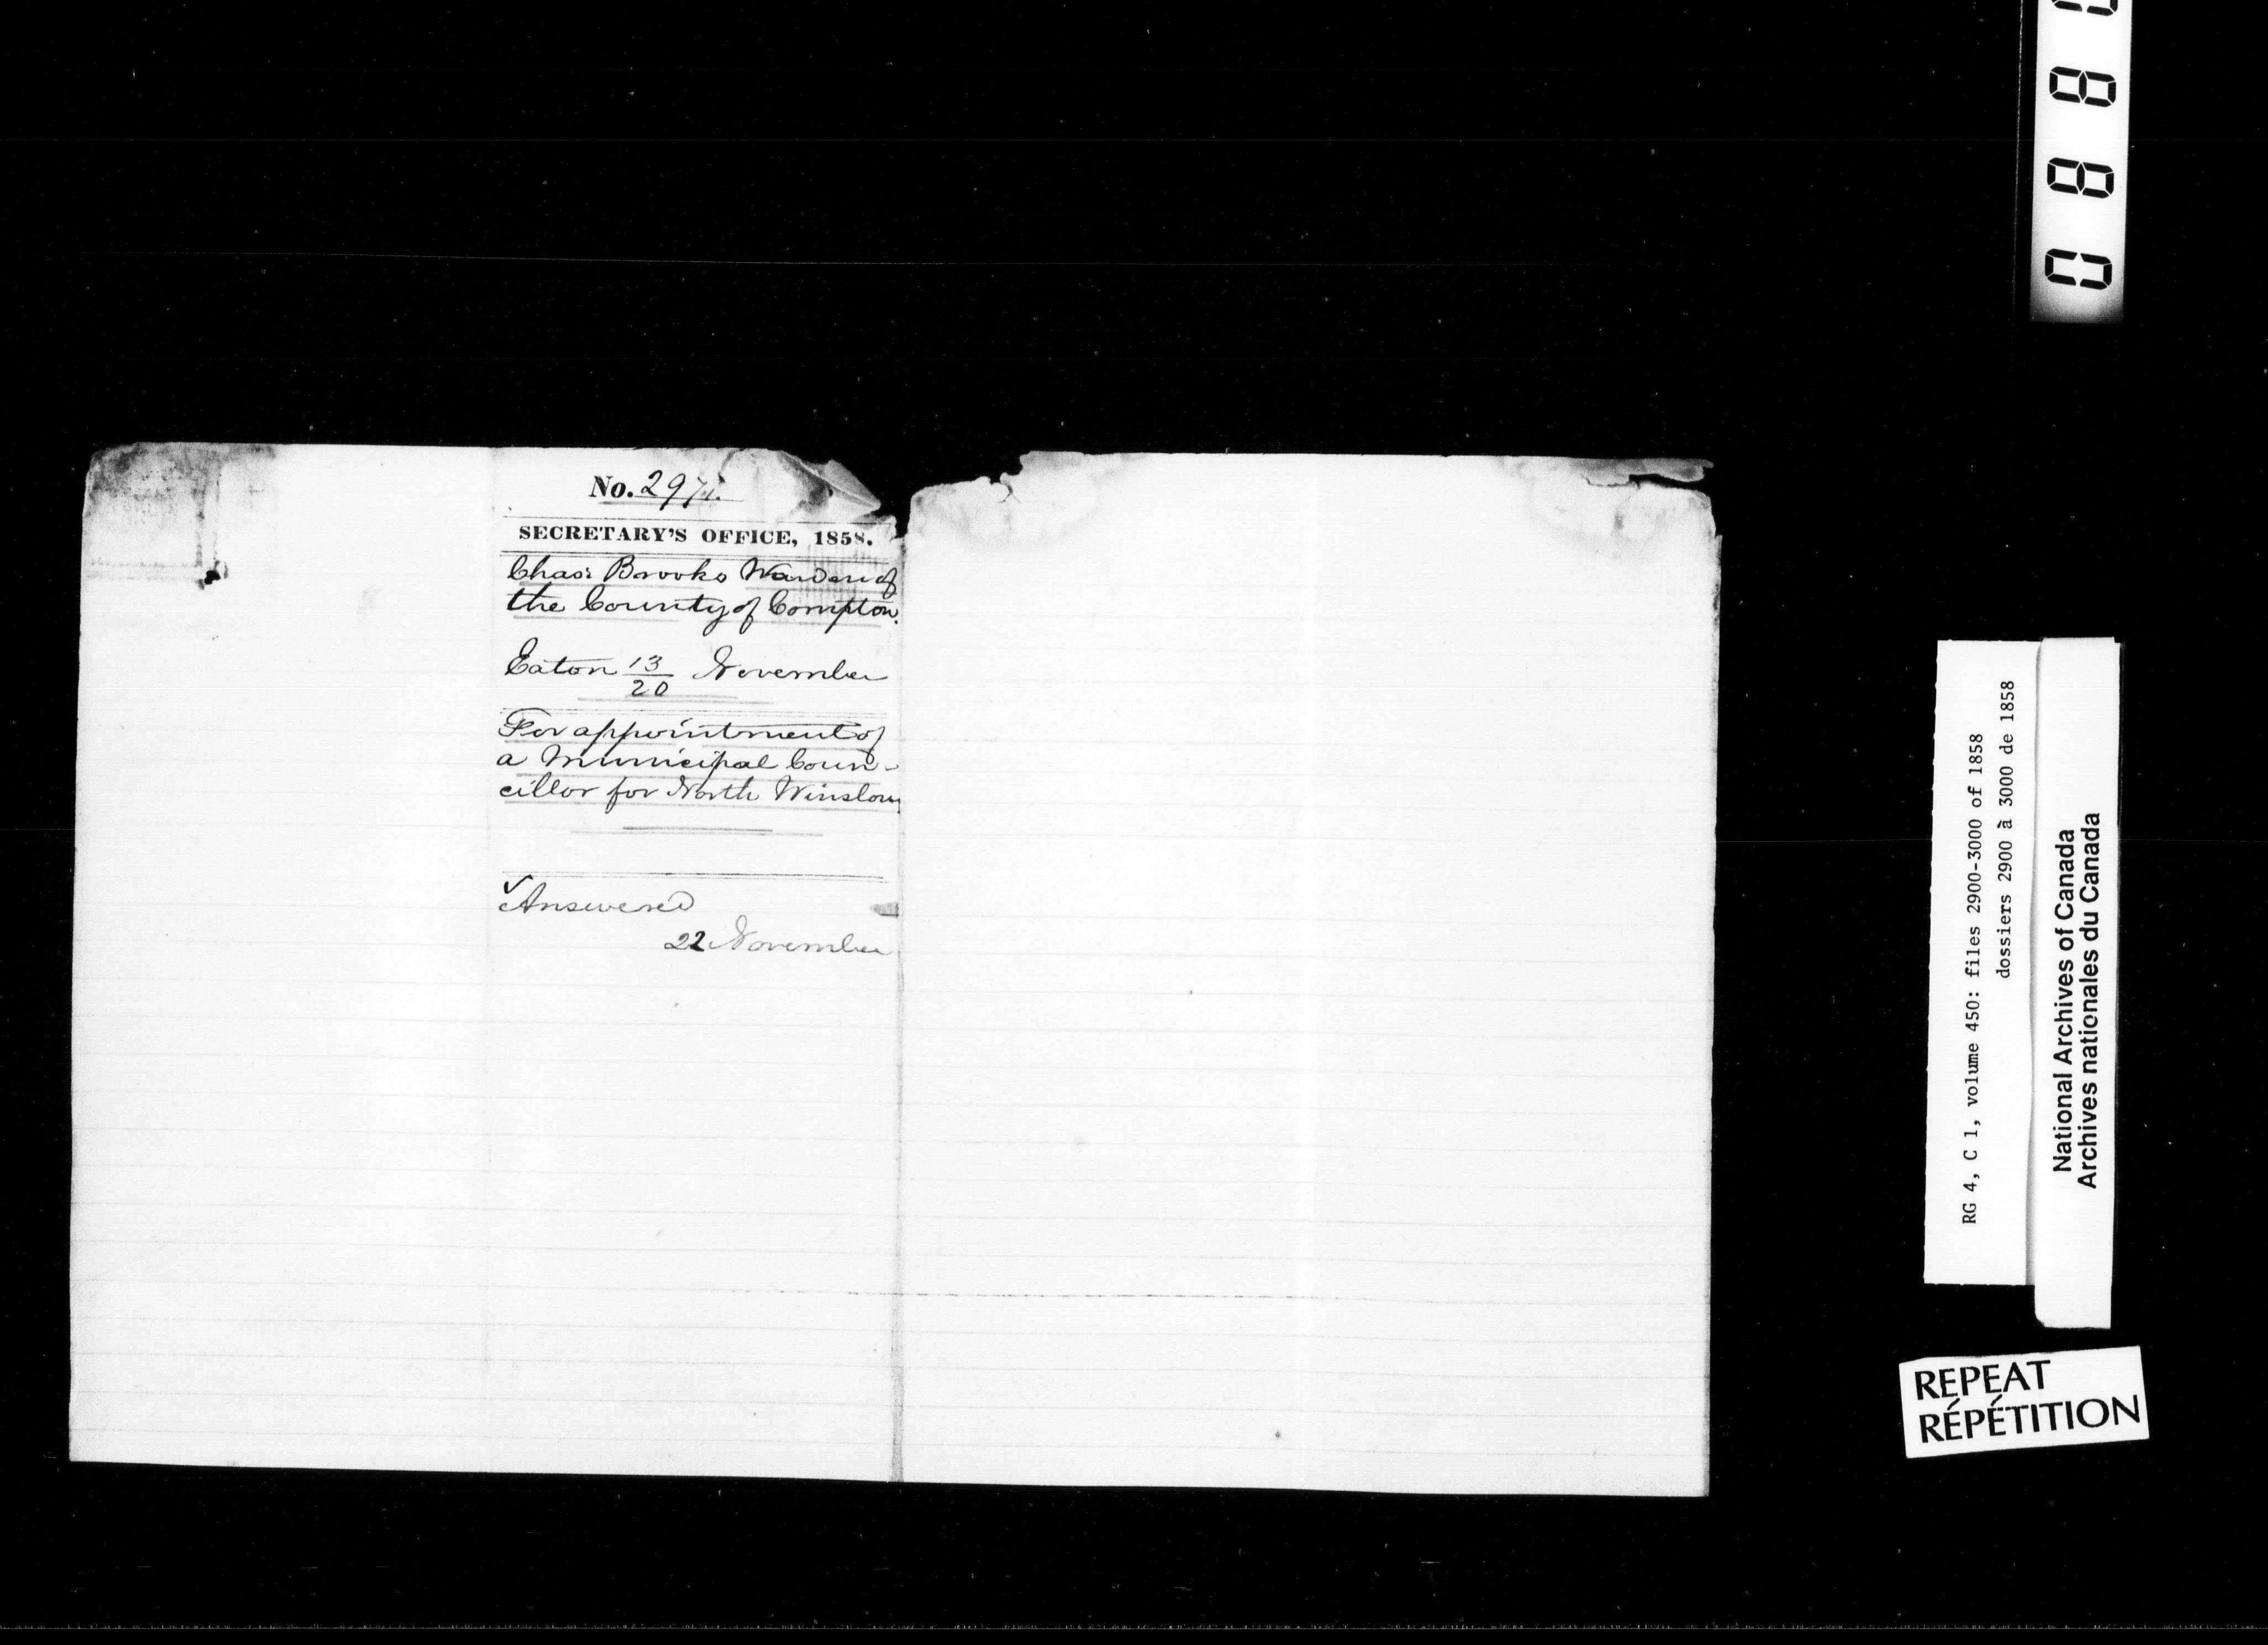 No. 297
SECRETARY'S OFFICE, 1858.
Chas: Brooks Warden of
the County of Compton.
Eaton 13/20 November
For appointment of
a Municipal Coun-
cillor for North Winslow
✓Answered
22 November
RG 4, C 1, volume 450: files 2900-3000 of 1858
dossiers 2900 à 3000 de 1858
National Archives of Canada
Archives nationales du Canada
REPEAT
RÉPÉTITION
088